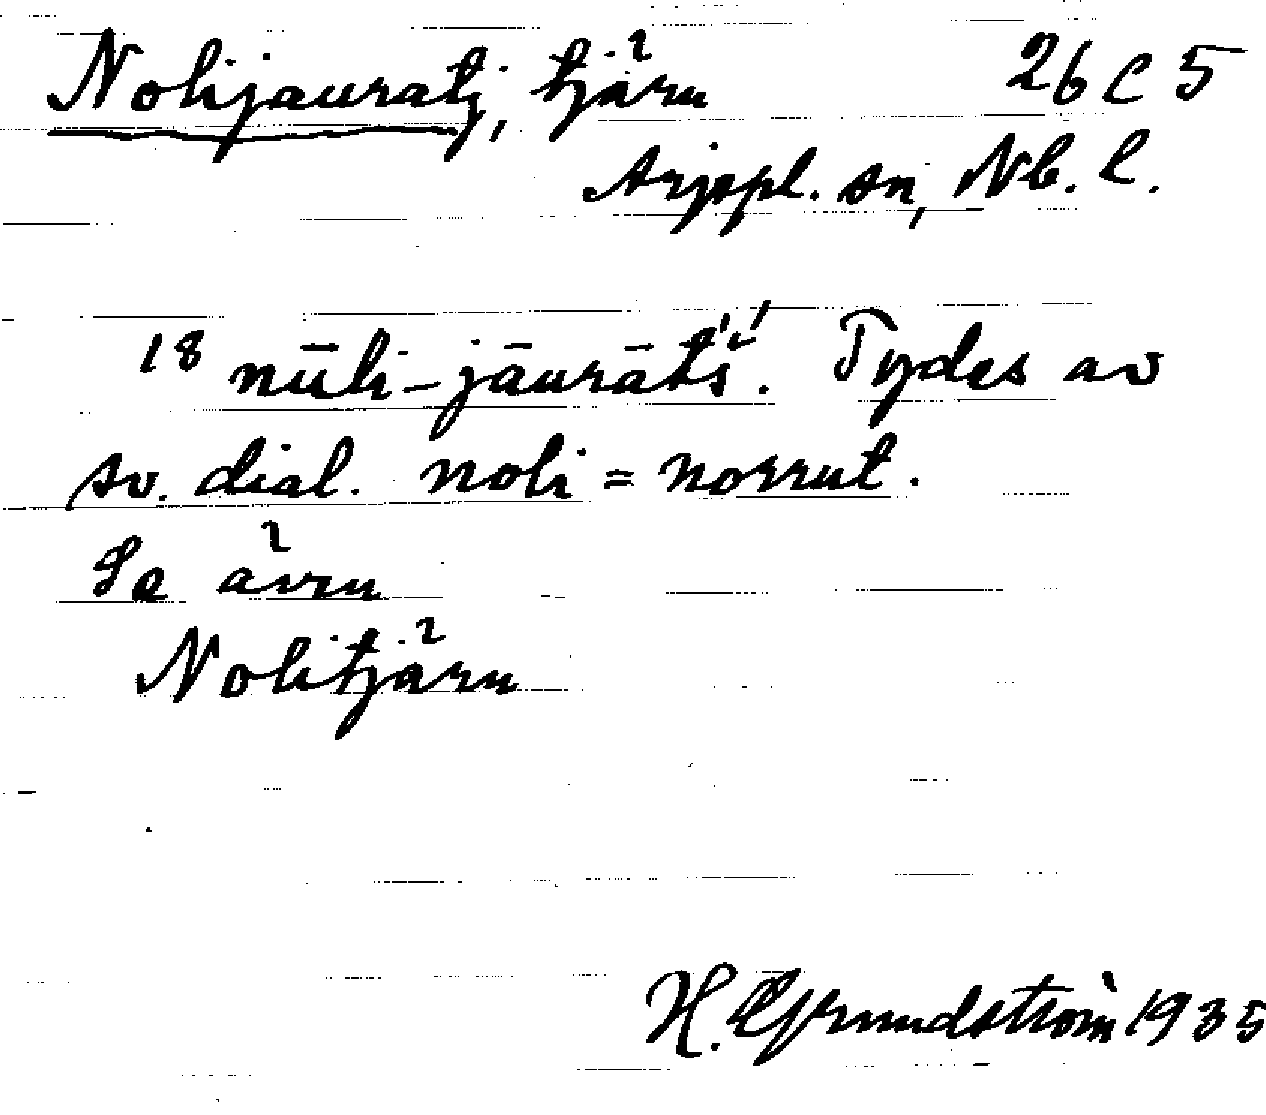 Nolijauratj, tjärn 26 C 5
Arjepl. sn, Nb. l.
18 nūli-jāurātś. Tydes av
sv. dial. noli = norrut.
Se även
Nolitjärn
H. Grundström 1935